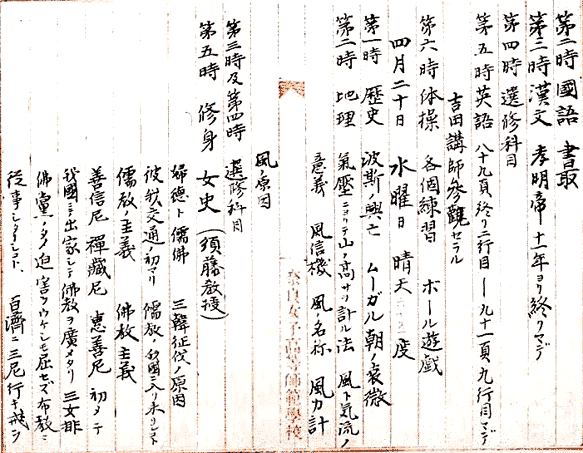 第二時國語 書取
第三時漢文 孝明帝十一年ヨリ終リマデ
第四時選修科目
第五時英語 八十九頁終リ二行目ー九十一頁九行目マデ
吉田講師參觀セラル
第六時体操 各個練習 ボール遊戯
四月二十日 水曜日 晴天 度
第一時 歴史 波斯ノ興亡 ムーガル朝ノ衰微
第二時 地理 氣壓ニヨリテ山ノ高サヲ計ル法 風ト氣流ノ
意義 風信機 風ノ名称 風力計
奈良女子高等師範學校
風ノ原因
第三時及第四時 選修科目
第五時 修身 女史(須藤教授)
婦德ト儒佛 三韓征伐ノ原因
彼我交通ノ初マリ 儒教ノ我國ニ入リ来リシコト
儒教ノ主義 佛教主義
善信尼 禪藏尼 惠善尼 初メテ
我國ニテ出家シテ佛教ヲ廣メタリ 三女非
佛黨ノタメ迫害ヲウケシモ屈セズ布教ニ
從事シタリシコト、 百濟ニ三尼行キ戒ヲ